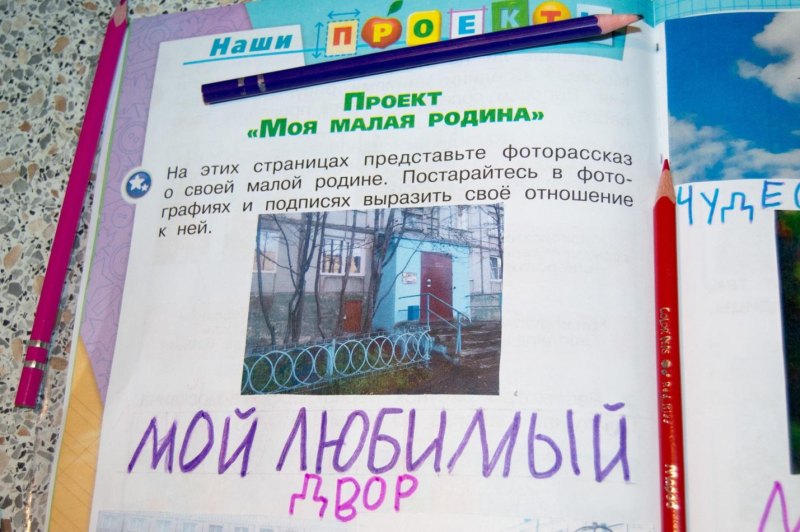 Наши ПРОЕКТЫ
ПРОЕКТ
«МОЯ МАЛАЯ РОДИНА»
На этих страницах представьте фоторассказ
о своей малой родине. Постарайтесь в фото-
графиях и подписях выразить своё отношение
к ней.
МОЙ ЛЮБИМЫЙ
ДВОР
ЧУДЕС